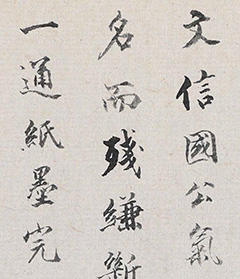 文信國公氣
名而殘縑斷
一通紙墨完